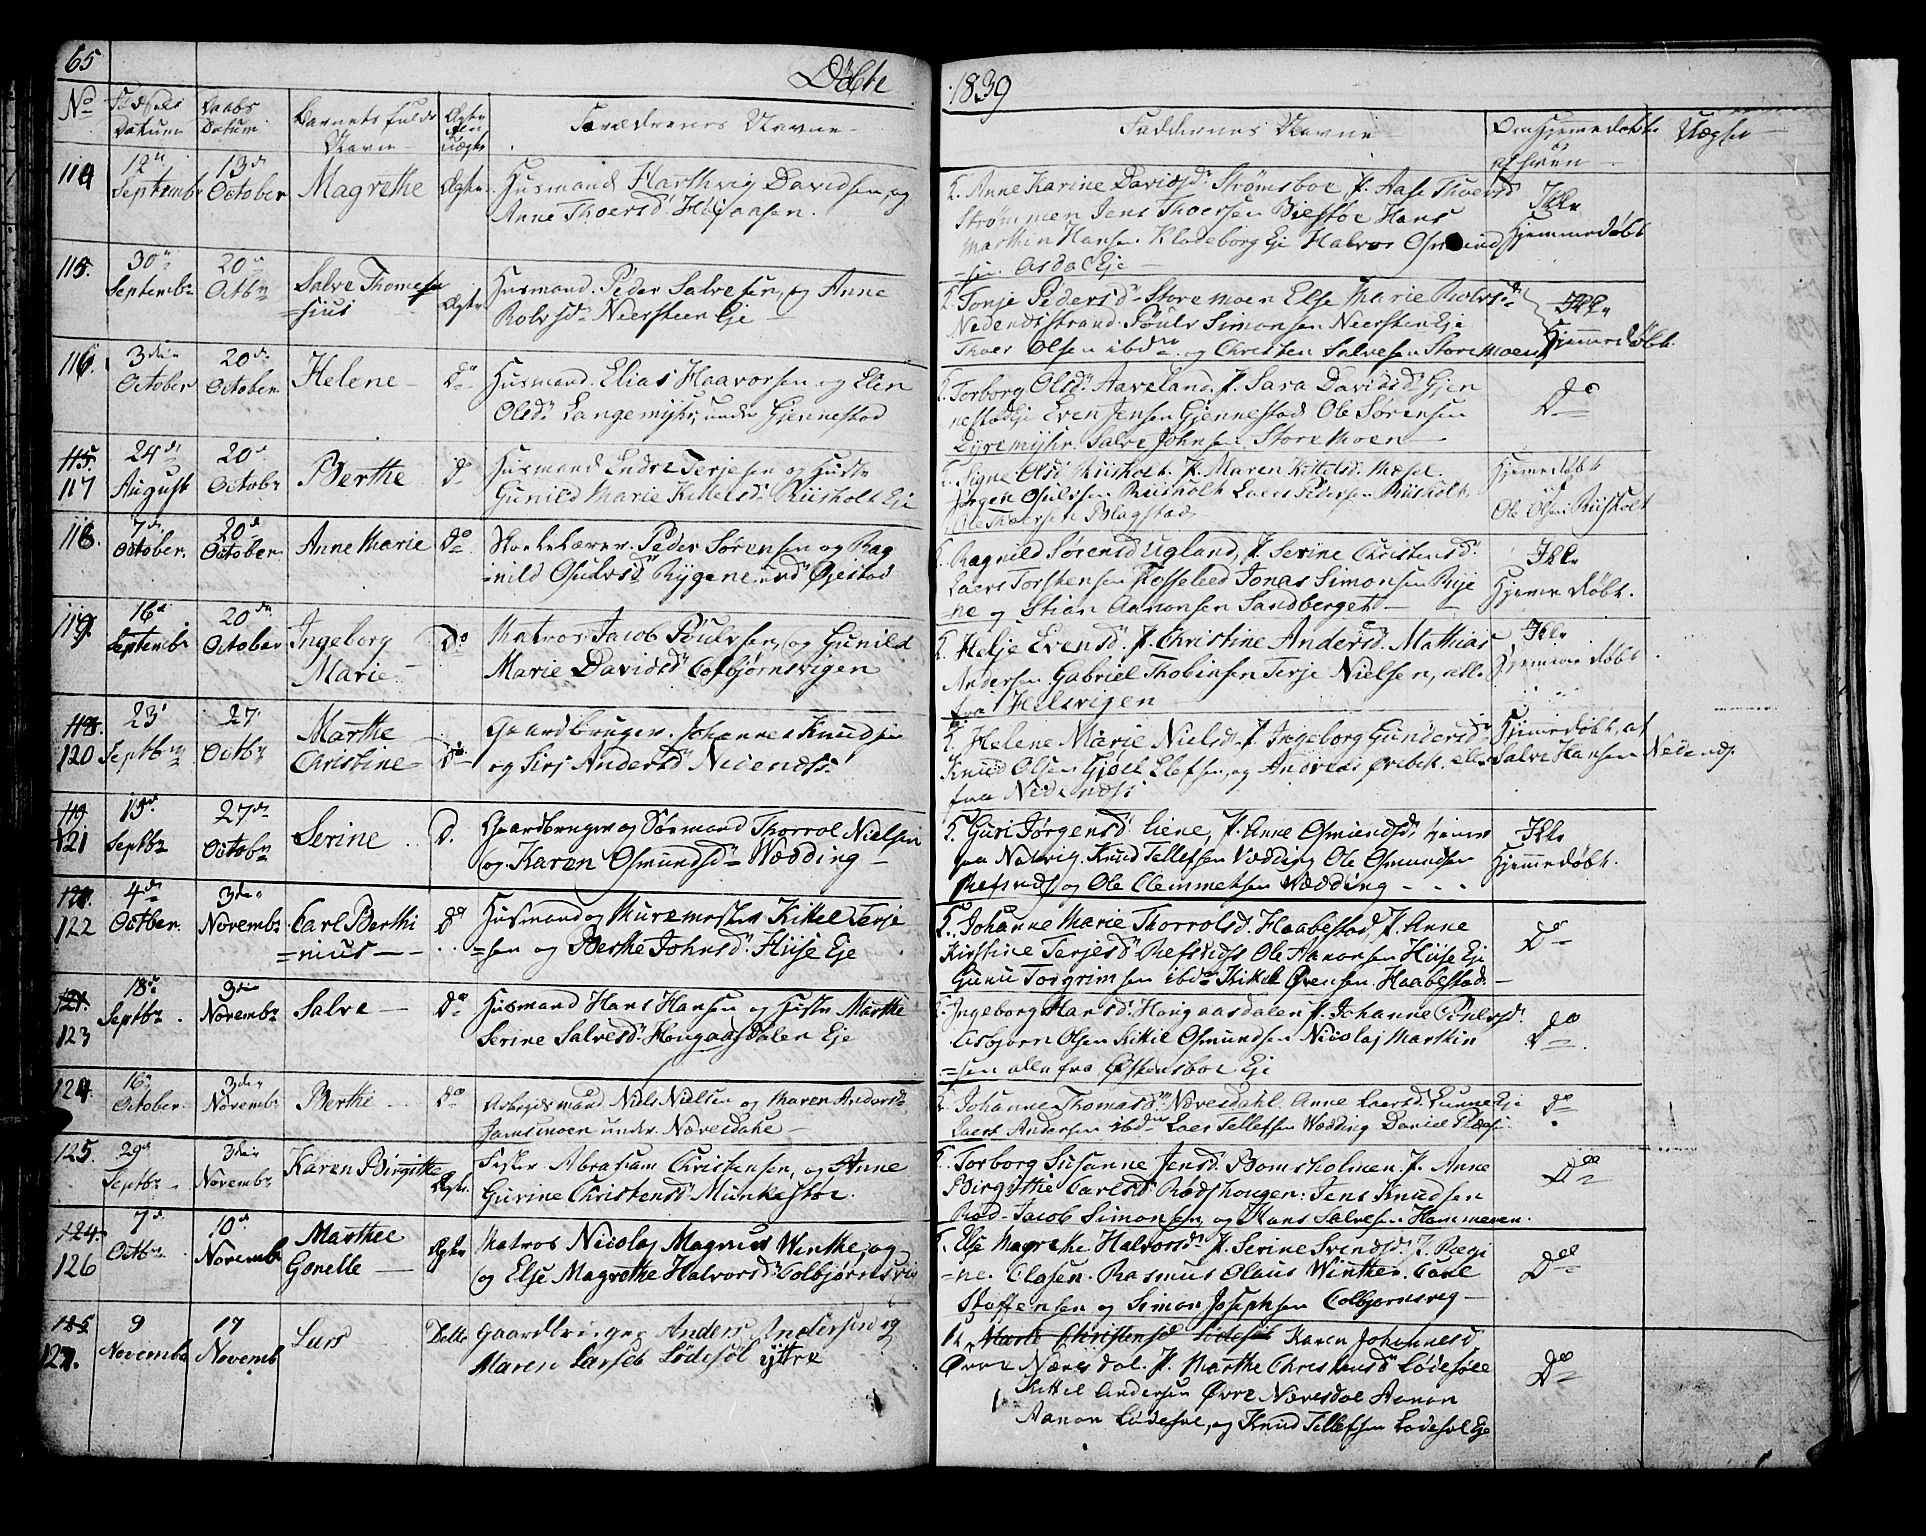 65
Döbte
1839
No
Fødsels Datum
Daabs Datum
Barnets fulde Navn
Ægte eller uægte
Forældrenes Navne
Faddernes Navne
Om Hjemmedøbt
af hvem
114
12te September
13de October
Magrethe
Ægte
Husmand Harthvig Davidsen, og
Anne Thoersd:
F. Anne Karine Davidsd: Strømsboe P. Aase Thoersd
Strømmen Jens Thorsen Biestøe Hans
Marthin Hansen Kladeborg Eje Halvor Osmund
=sen. Asdal Eje
Ikke
Hjemmedøbt
115.
30te September
20de Octbr
Salve Thome
=sius
Ægte
Husmand. Peder Salvesen, og Anne
Rolvsd: Neersteen Eje
F. Tonje Pedersd: Store Moen Else Marie Rolvsd:
Nedenæsstrand. Poulv Simonsen Neersten Eje
Thoer Olsen ibdm og Christen Salvesen Store Moen
Ikke
Hjemmedøbt
116.
3die October
20de October
Helene
Do
Husmand. Elias Haavorsen og Elen
Olsd: Langemyhr, under Gjennestad
F. Torborg Olsd: Aaveland, P. Sara Davidsd: Gjen
nestad Eje Even Jensen Gjennestad Ole Sørensen
Dyremyhr. Salve Johnsen Store Moen
Do
117
24de August
20de Octobr
Berthe
Do
Husmand Endre Terjesen og Hustr
Gunild Marie Kittelsd: Riisholt Eje
F. Signe Olsd: Riisholt. P. Maren Kittelsd: Mæsel.
Jørgen Osulvsen Riisholt Laers Pedersen Riisholt
Ole Thoersen Blagstad
Hjemmedøbt
af
Ole Olsen Riisholt
118.
7de October.
20de October
Anne Marie
Do
Skolelærer. Peder Sørensen og Rag
=nild Osulvsd: Rygene und Øiestad
F. Ragnild Sørensd: Ugland, P. Serine Christensd:
Laers Torstensen Fosseleed Jonas Simonsen Rije
=ne og Stian Aanonsen Sandberget
Ikke
Hjemmedøbt.
119.
16de Septembr
20de October
Ingeborg
Marie
Do
Matros Jacob Poulvsen, og Gunild
Marie Davidsd: Colbjørnsvigen
F. Helje Evensd: P. Christine Andersd: Mathias
Andersen Gabriel Thobiasen Terje Nielsen, alle
fra Helsvigen
Ikke
Hjemmedøbt
120
23de Septbr
27 Octbr
Marthe
Christine
Do
Gaardbruger. Johannes Knudsen
og Siri Andersd: Nedenæs:
F. Helene Marie Nielsd: P. Ingeborg Gundersd:
Knud Olsen Gjøel Elefsen, og Andreas Ørebek, alle
fra Nedenæs
Hjemmedøbt, af
Salve Hansen Nedenæs.
121
15de Septbr
27de Octobr
Serine
D.
Gaardbruger og Sömand Thorrol Nielsen
og Karen Osmundsd: Wædding
F. Guri Jørgensd: Liene, P. Anne Osmundsd: hjemme
paa Natvig. Knud Tellefsen Vædding Ole Osmundsen
Refsnæs og Ole Clemmetsen Wædding
Ikke
Hjemmedøbt.
122
4de October.
3die Novembr
Carl Berthi
=nius
Do
Husmand og Muremester Kittel Terje
=sen og Berthe Johnsd: Huse Eje
F. Johanne Marie Thorrolsd: Haabestad, P. Anne
Kirstine Terjesd: Refsnæs Ole Aanonsen Huse Eje
Gunu Torgrimsen ibdm Kittel Evensen Haabestad
Do
123
18de Septbr.
3die Novembr
Salve
Do
Husmand Hans Hansen og Hustr Marthe
Serine Salvesd: Hougaasdalen Eje
F. Ingeborg Hansd: Hougaasdalen P. Johanne Poulvsd:
Asbjørn Olsen Kittil Osmundsen Nicolaj Marthin
=sen alle fra Østensboe Eje
Do
124
16de October.
3die Novembr
Berthe
Do
Arbejdsmand Niels Nielsen og Maren Andersd
Jamsmoen under Næresdahl
F. Johanne Thomasd: Næresdahl. Anne Laersd: Lunne Eje
Laers Andersen ibdm Laers Tellefsen Wædding Daniel
Do
125.
29de Septbr
3die Novembr
Karen Birgitte
Ægte
Fisker Abraham Christensen, og Anne
Gurine Christensd: Munkestøe.
F. Torborg Susanne Jensd: Bomsholmen P. Anne
Birgithe Carlsd: Rødshougen. Jens Knudsen
Rød Jacob Simonsen og Hans Salvesen Hammeren.
Do
126
7de Octbr
10de Novembr
Marthee
Gonelle
Ægte
Matros Nicolaj Magnus Winthe, og
og Else Magrethe Halvorsd: Colbjørnsvig
F. Else Magrethe Halvorsd: P. Serine Svendsd: J. Rægi
=ne. Olasen. Rasmus Olaus Winther. Carl
Staffensen og Simon Josephsen Colbjørnsvig
Do
127.
9 Novembr
17 Novemb
Lars
Dette
Gaardbruger Anders Andersen og
Maren Larsd: Lödesöl yttre
F. Karen Johannesd
Øvre Næresdal. P. Marthe Christensd: Lødesøll
Kittel Andersen Øvre Næresdal Aanon
Aanon Lødesøl, og Knud Tellefsen Lødesøl Eje
Do